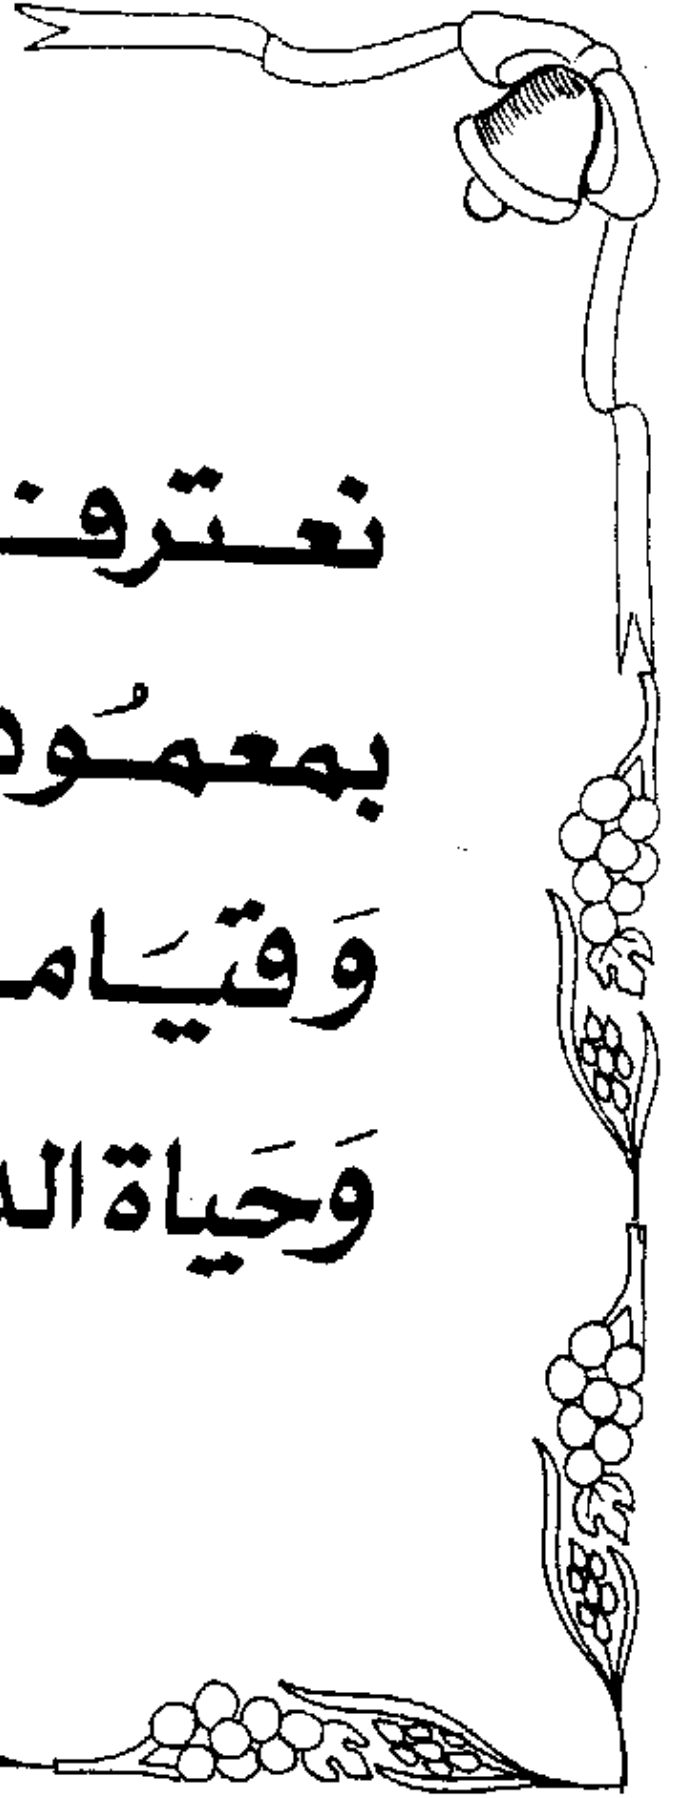 نعترف
بمعمُود
وَقيَامـ
وَحَياة الد